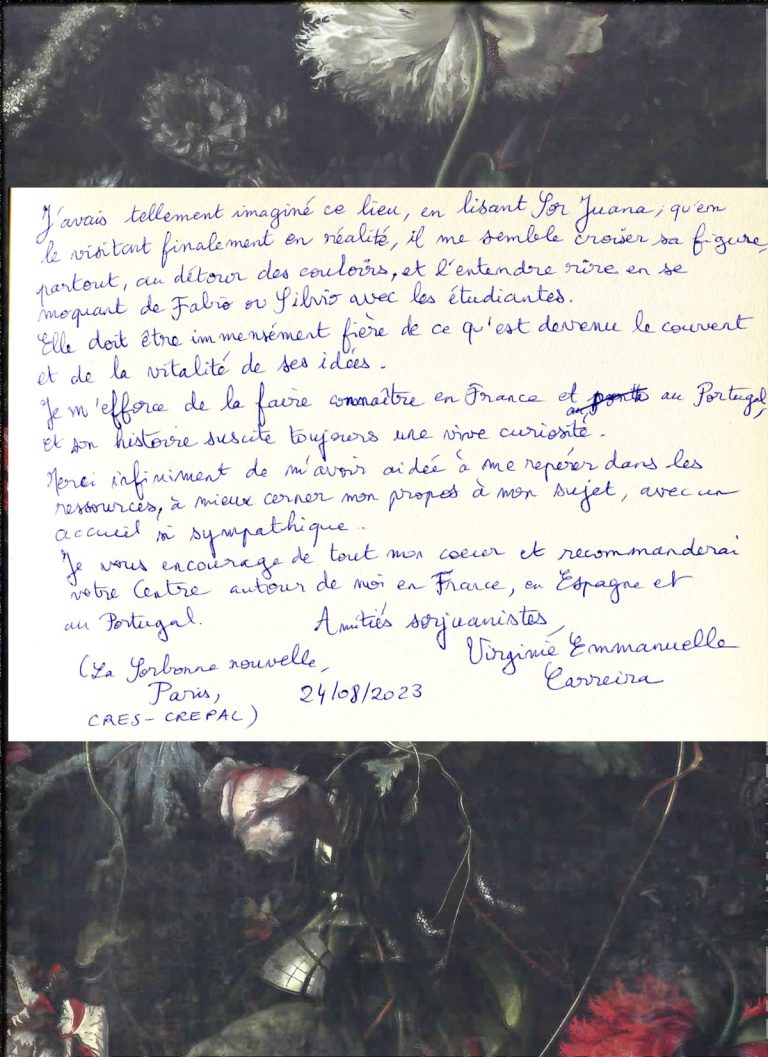 J'avais tellement imaginé ce lieu, en lisant Sor Juana, qu'en
le visitant finalement en réalité, il me semble croiser sa figure,
partout, au détour des couloirs, et l'entendre rire en se
moquant de Fabio ou Silvio avec les étudiantes.
Elle doit être immensément fière de ce qu'est devenu le couvent
et de la vitalité de ses idées.
Je m'efforce de la faire connaître en France et au Portugal,
et son histoire suscite toujours une vive curiosité.
Merci infiniment de m'avoir aidée à me repérer dans les
ressources, à mieux cerner mon propos à mon sujet, avec un
accueil si sympathique..
Je vous encourage de tout mon coeur et recommanderai
votre Centre autour de moi en France, en Espagne et
au Portugal. Amitiés sorjuanistes,
Virginie Emmanuelle
Carreira
(La Sorbonne nouvelle,
Paris, 24/08/2023
CRES-CREPAL)